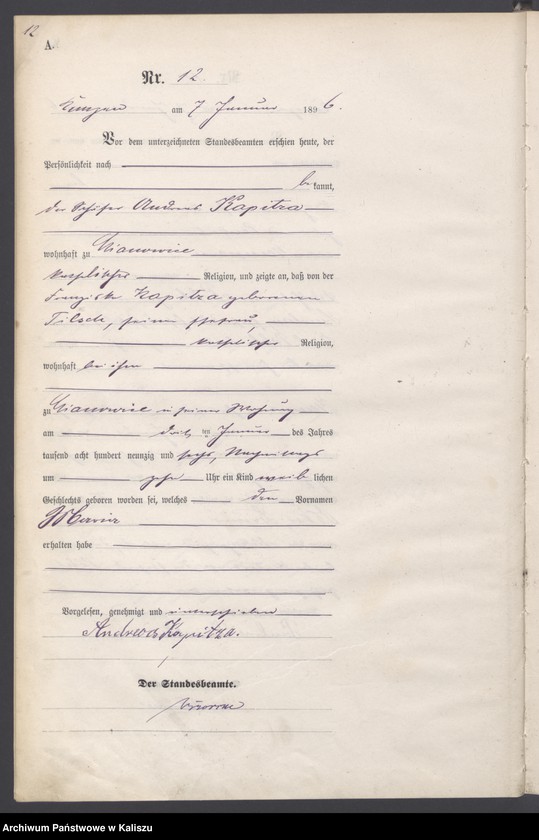 12
A.
Nr. 12
am 7 Januar 1896.
Vor dem unterzeichneten Standesbeamten erschien heute, der
Persönlichkeit nach
bekannt,
der Schäfer Andreas Kapitza
wohnhaft zu
katholischer Religion, und zeigte an, daß von der
Franziska Kapitza geborenen
seiner Ehefrau,
katholischer Religion,
wohnhaft bei ihm
zu in seiner Wohnung
am ten Januar des Jahres
tausend acht hundert neunzig und sechs, Nachmittags
um zehn Uhr ein Kind weiblichen
Geschlechts geboren worden sei, welches den Vornamen
erhalten habe
Vorgelesen, genehmigt und unterschrieben
Andreas Kapitza.
Der Standesbeamte.
Archiwum Państwowe w Kaliszu